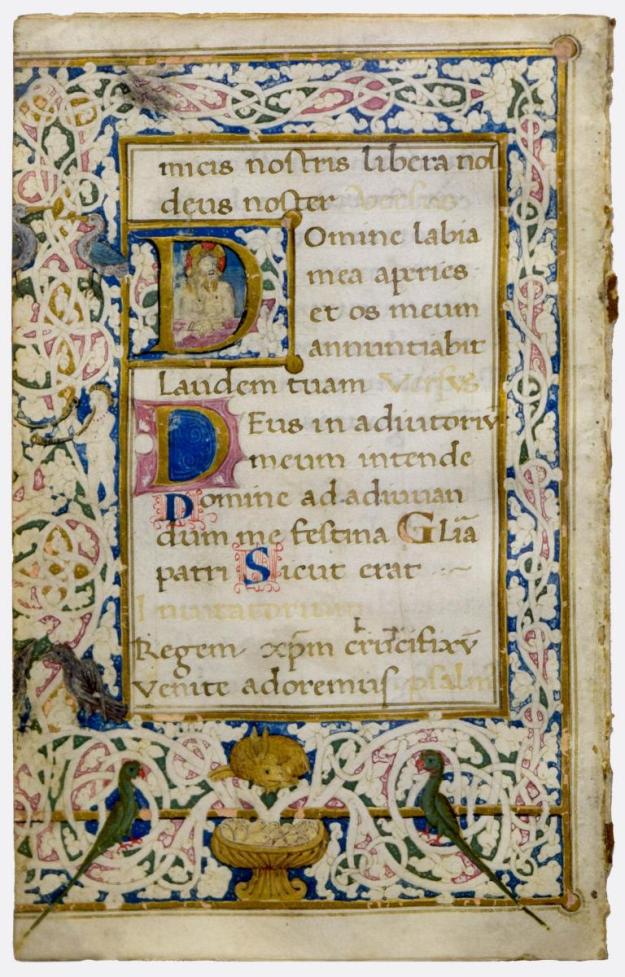 imicis nostris libera nos
deus noster
Domine labia
mea aperies
et os meum
annuntiabit
Laudem tuam Versus
DEus in adiutoriū
meum intende
Domine ad adiuuan
dum me festina Glīa
patri Sicut erat
Inuitatorium
Regem xp̄m crucifixū
Venite adoremus psalm